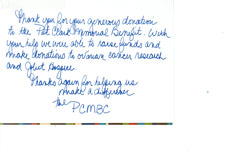 Thank you for your generous donation
to the Pat Clark Memorial Benefit. With
your help we were able to raise funds and
make donations to ovarian cancer research
and Joliet Hospice.
Thanks again for helping us
make a difference
The PCMBC